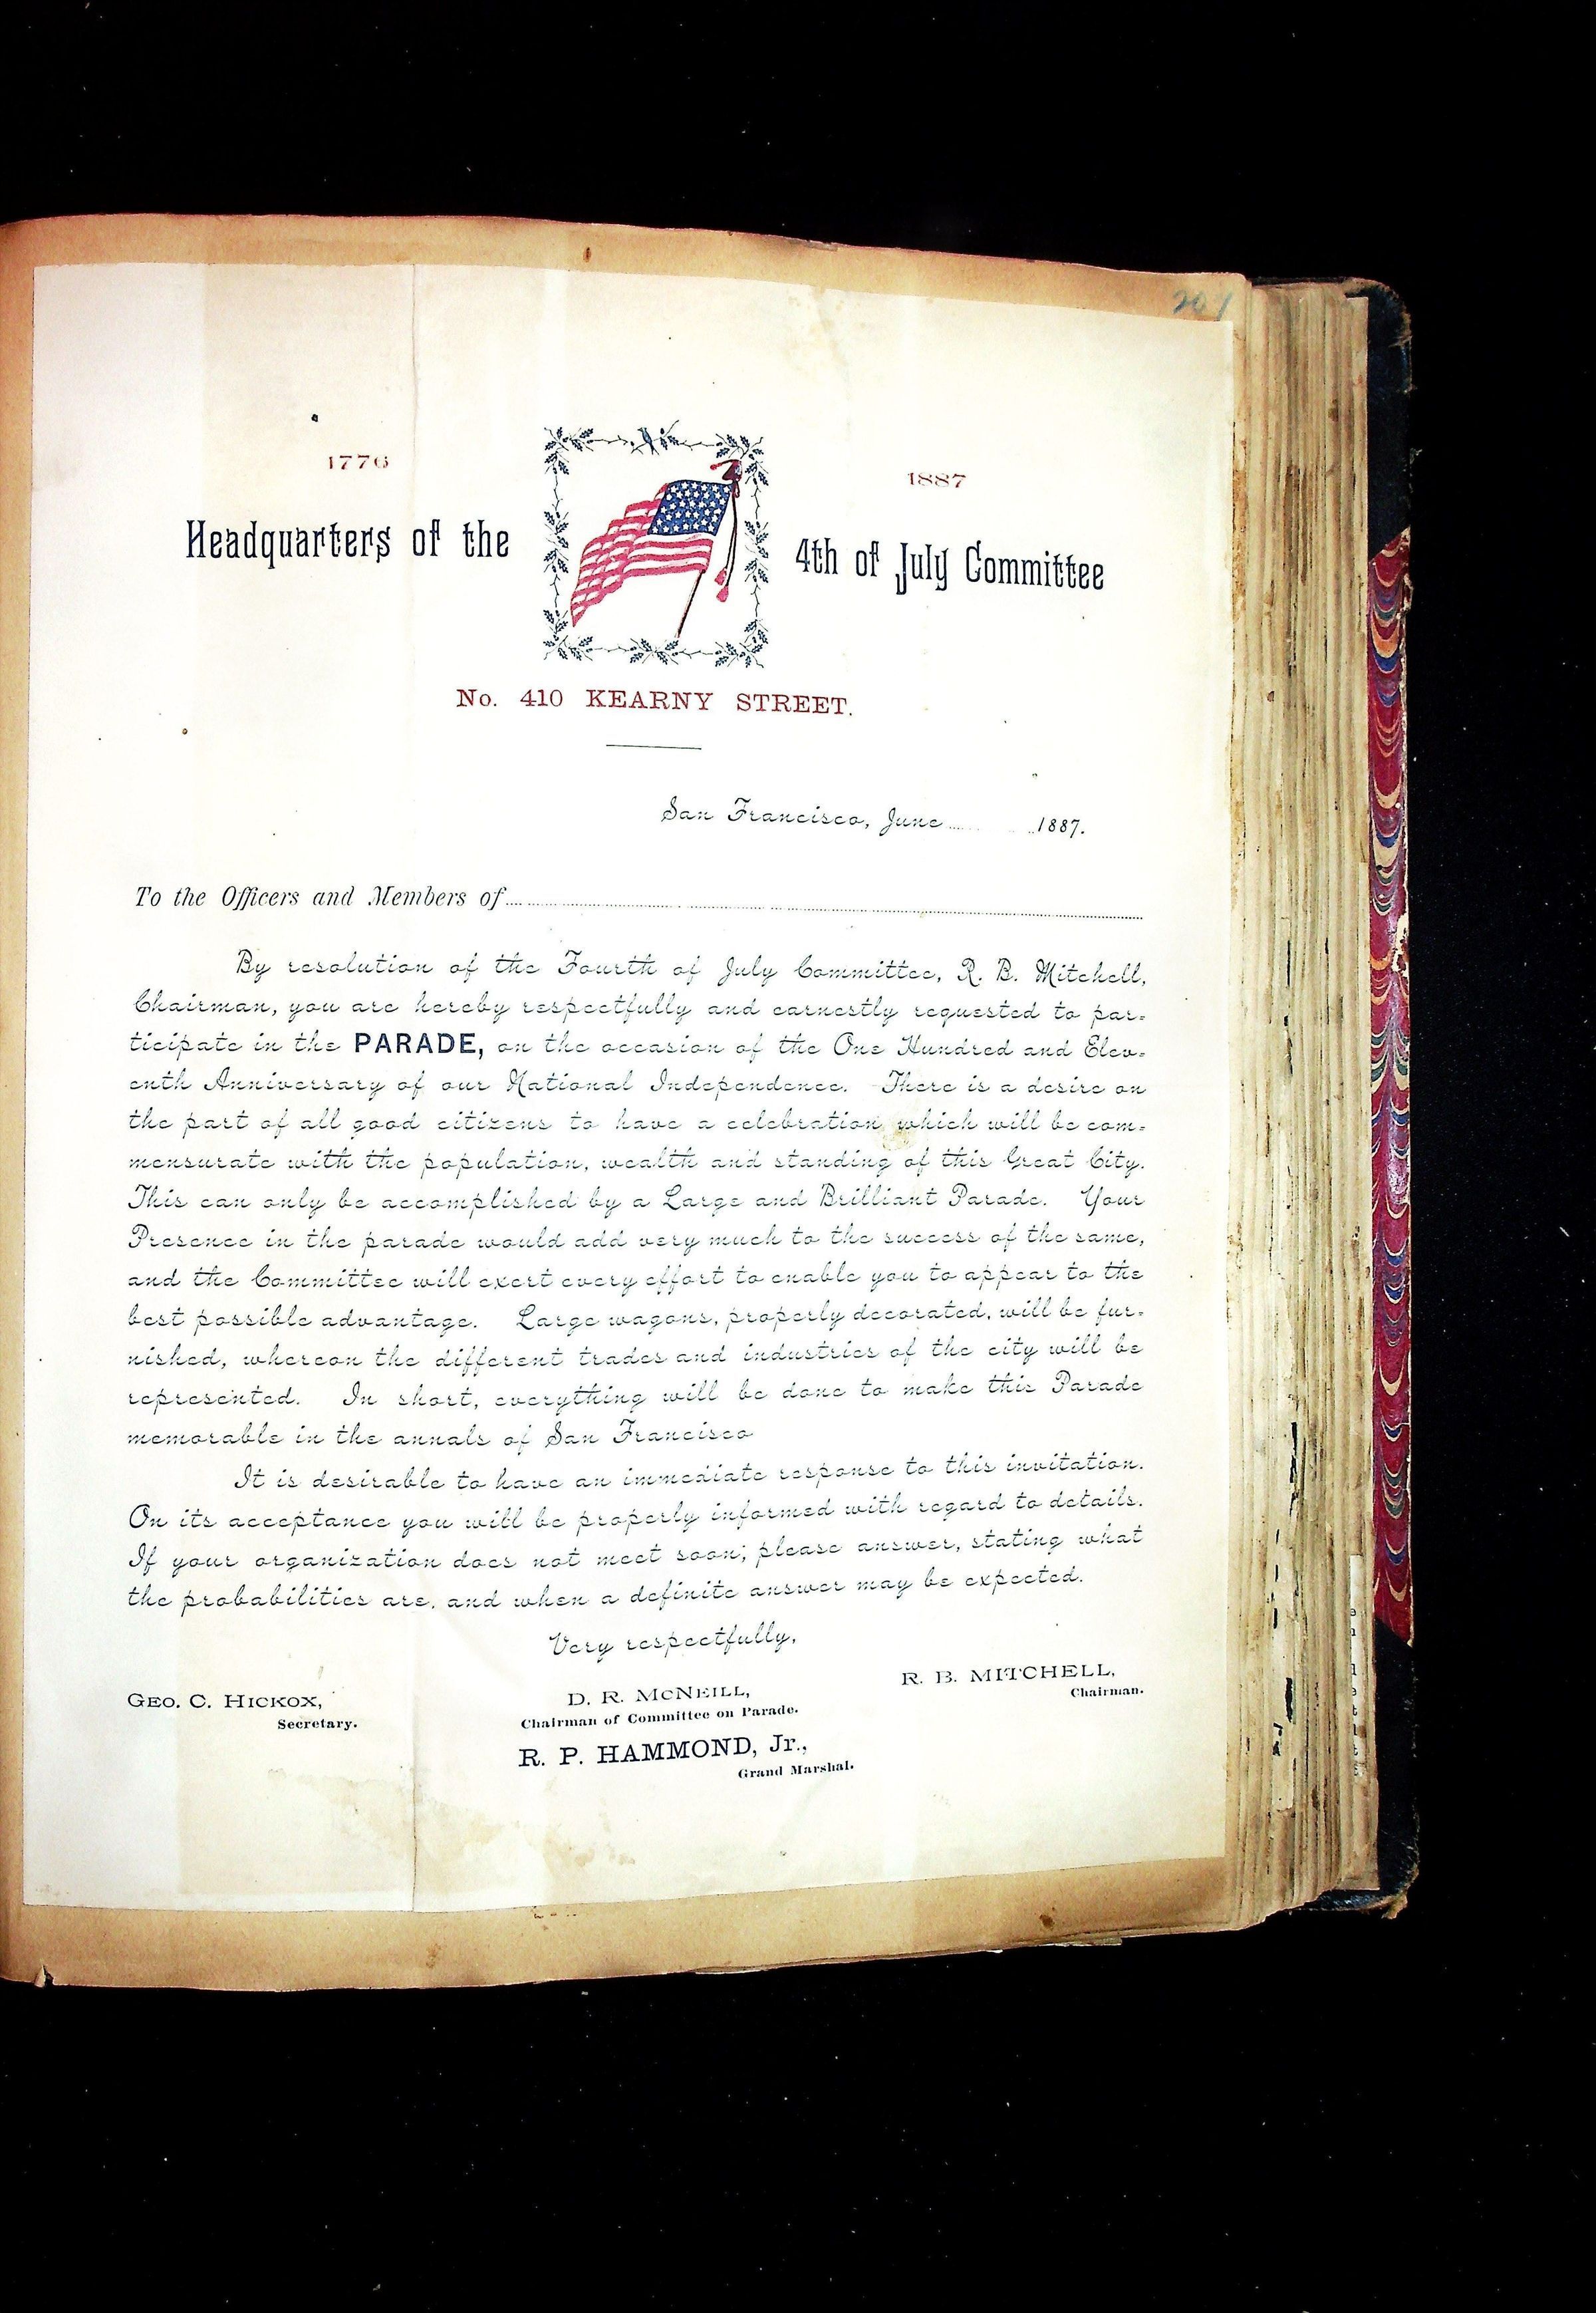 201
1776
1887
Headquarters of the 4th of July Committee
No. 410 KEARNY STREET.
San Francisco, June 1887.
To the Officers and Members of
By resolution of the Fourth of July Committee, R. B. Mitchell,
Chairman, you are hereby respectfully and earnestly requested to par-
ticipate in the PARADE, on the occasion of the One Hundred and Elev-
enth Anniversary of our National Independence. There is a desire on
the part of all good citizens to have a celebration which will be com-
mensurate with the population, wealth and standing of this Great City.
This can only be accomplished by a Large and Brilliant Parade. Your
Presence in the parade would add very much to the success of the same,
and the Committee will exert every effort to enable you to appear to the
best possible advantage. Large wagons, properly decorated, will be fur-
nished, whereon the different trades and industries of the city will be
represented. In short, everything will be done to make this Parade
memorable in the annals of San Francisco
It is desirable to have an immediate response to this invitation.
On its acceptance you will be properly informed with regard to details.
If your organization does not meet soon; please answer, stating what
the probabilities are, and when a definite answer may be expected.
Very respectfully,
R. B. MITCHELL,
Chairman.
GEO. C. HICKOX,
Secretary.
D. R. McNEILL,
Chairman of Committee on Parade.
R. P. HAMMOND, Jr.,
Grand Marshal.